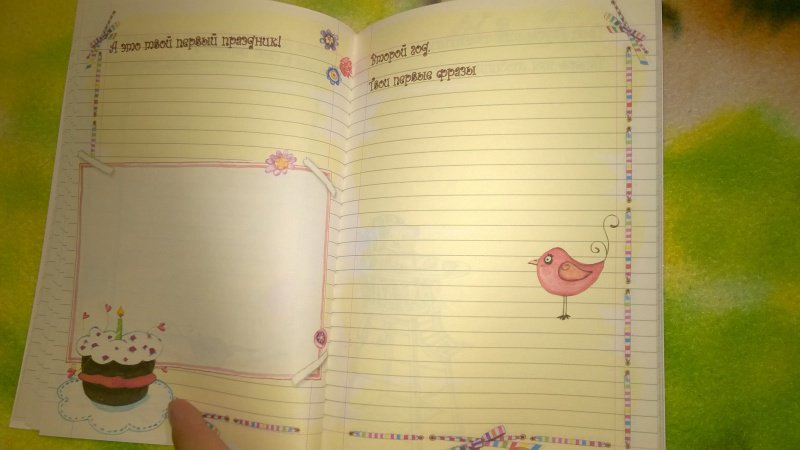 А это твой первый праздник!
Второй год.
Твои первые фразы